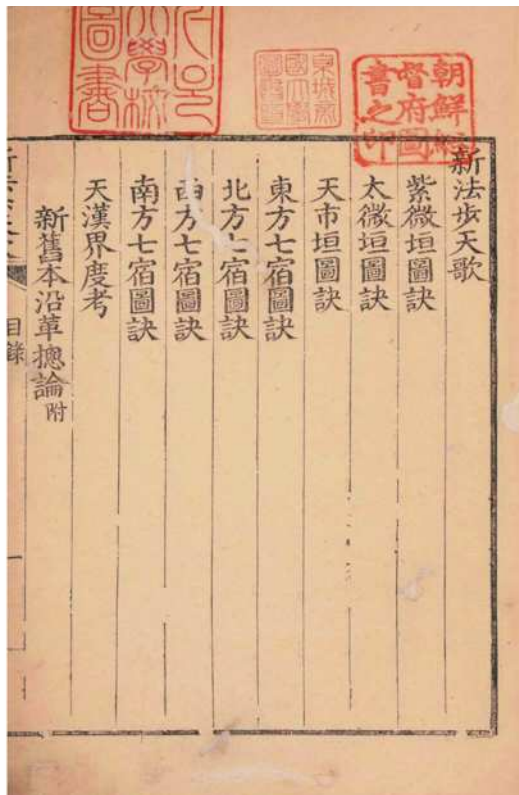 朝鮮總
督府圖
書之印
新法步天歌
紫微垣圖訣
太微垣圖訣
天市垣圖訣
東方七宿圖訣
北方七宿圖訣
西方七宿圖訣
南方七宿圖訣
天漢界度考
新舊本沿革摠論附
目錄
一